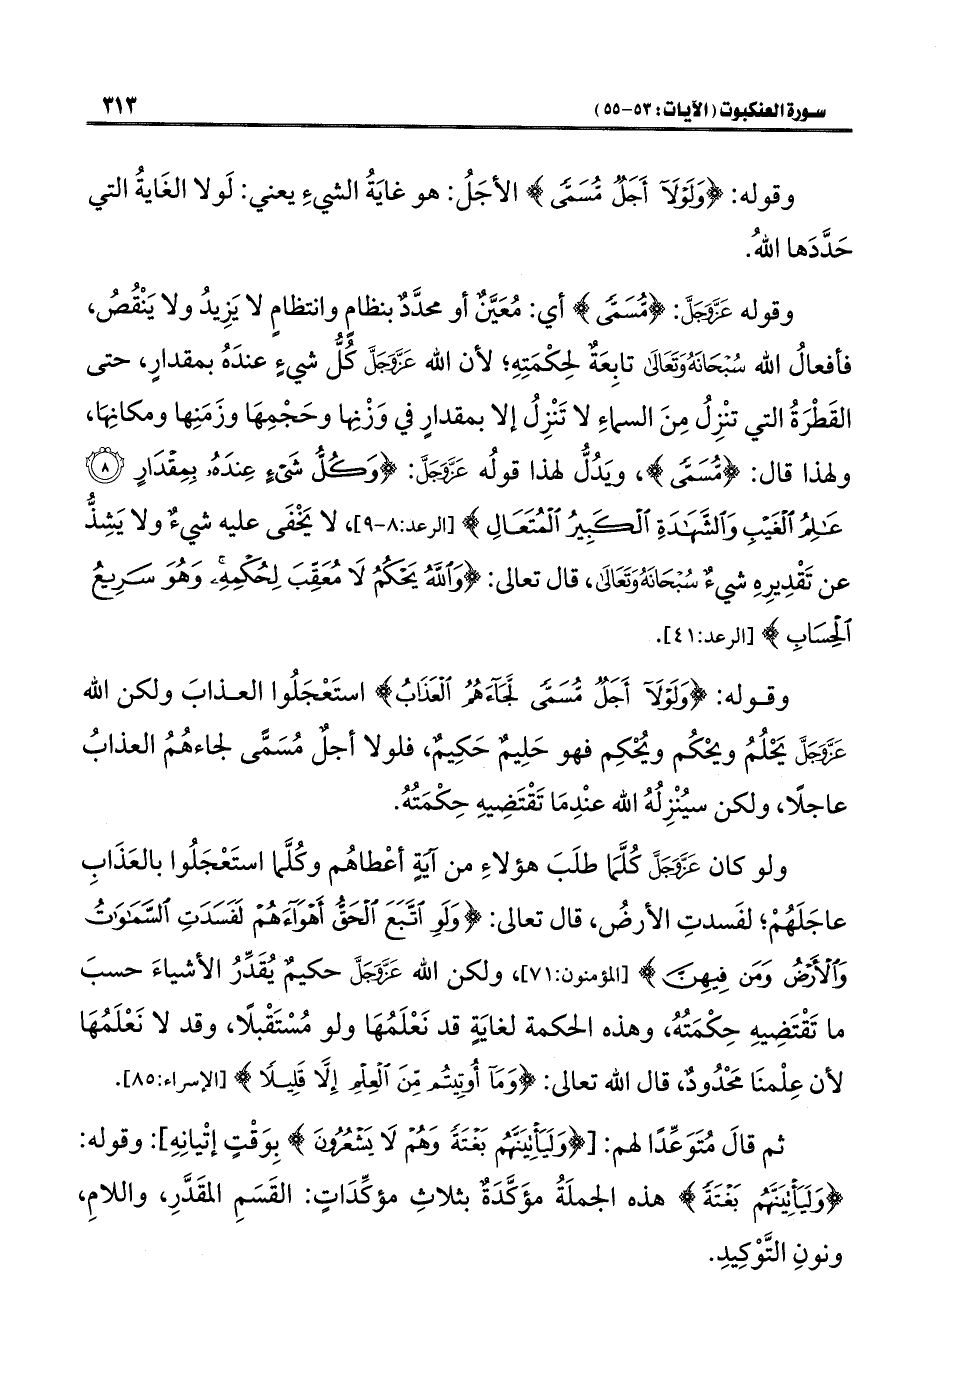 سورة العنكبوت (الآيات: ٥٣-٥٥)
٣١٣
وقوله: ﴿وَلَوْلَآ أَجَلٌ مُّسَمًّى﴾ الأجَلُ: هو غايَةُ الشيءِ يعني: لَولا الغَايةُ التي
حَدَّدَها اللهُ.
وقوله عَزَّوَجَلَّ: ﴿مُّسَمًّى﴾ أي: مُعَيَّنٌ أو محدَّدٌ بنظامٍ وانتظامٍ لا يَزِيدُ ولا يَنْقُصُ،
فأفعالُ الله سُبْحَانَهُ وَتَعَالَى تابِعَةٌ لحِكْمَتِهِ؛ لأن الله عَزَّوَجَلَّ كُلُّ شيءٍ عندَهُ بمقدارٍ، حتى
القَطْرَةُ التي تنْزِلُ مِنَ السماءِ لا تَنْزِلُ إلا بمقدارٍ في وَزْنِها وحَجْمِهَا وزَمَنِها ومكانِهَا،
ولهذا قال: ﴿مُّسَمًّى﴾، ويَدُلُّ لهذا قولُه عَزَّوَجَلَّ: ﴿وَكُلُّ شَىْءٍ عِندَهُۥ بِمِقْدَارٍ ٨
عَـٰلِمُ ٱلْغَيْبِ وَٱلشَّهَـٰدَةِ ٱلْكَبِيرُ ٱلْمُتَعَالِ﴾ [الرعد:٨-٩]، لا يَخْفَى عليه شيءٌ ولا يَشِذُّ
عن تَقْدِيرِهِ شيءٌ سُبْحَانَهُ وَتَعَالَى، قال تعالى: ﴿وَٱللَّهُ يَحْكُمُ لَا مُعَقِّبَ لِحُكْمِهِۦ ۚ وَهُوَ سَرِيعُ
ٱلْحِسَابِ﴾ [الرعد:٤١].
وقوله: ﴿وَلَوْلَآ أَجَلٌ مُّسَمًّى لَّجَآءَهُمُ ٱلْعَذَابُ﴾ استَعْجَلُوا العذابَ ولكن الله
عَزَّوَجَلَّ يَحْلُمُ ويحْكُم ويُحْكِم فهو حَلِيمٌ حَكِيمٌ، فلولا أجلٌ مُسَمًّى لجاءهُمُ العذابُ
عاجلًا، ولكن سيُنْزِلُهُ الله عندِمَا تَقْتَضِيهِ حِكْمَتُهُ.
ولو كان عَزَّوَجَلَّ كُلَّما طلَبَ هؤلاءِ من آيَةٍ أعْطاهُم وكُلَّما استَعْجَلُوا بالعَذَابِ
عاجَلَهُمْ؛ لفَسدتِ الأرضُ، قال تعالى: ﴿وَلَوِ ٱتَّبَعَ ٱلْحَقُّ أَهْوَآءَهُمْ لَفَسَدَتِ ٱلسَّمَـٰوَٰتُ
وَٱلْأَرْضُ وَمَن فِيهِنَّ﴾ [المؤمنون:٧١]، ولكن الله عَزَّوَجَلَّ حكيمٌ يُقَدِّرُ الأشياءَ حسبَ
ما تَقْتَضِيهِ حِكْمَتُهُ، وهذه الحكمة لغايَةٍ قد نَعْلَمُهَا ولو مُسْتَقْبلًا، وقد لا نَعْلَمُهَا
لأن عِلْمنَا مَحْدُودٌ، قال الله تعالى: ﴿وَمَآ أُوتِيتُم مِّنَ ٱلْعِلْمِ إِلَّا قَلِيلًا﴾ [الإسراء:٨٥].
ثم قالَ مُتَوَعِّدًا لهم: [﴿وَلَيَأْتِيَنَّهُم بَغْتَةً وَهُمْ لَا يَشْعُرُونَ﴾ بِوَقْتِ إتْيانِهِ]: وقوله:
﴿وَلَيَأْتِيَنَّهُم بَغْتَةً﴾ هذه الجملَةُ مؤكَّدَةٌ بثلاثِ مؤكِّدَاتٍ: القَسَمِ المقَدَّرِ، واللامِ،
ونونِ التَّوْكِيدِ.